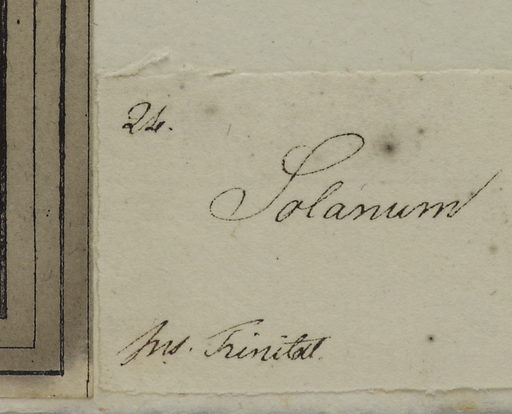 24.
Solanum
Ins. Trinitat.